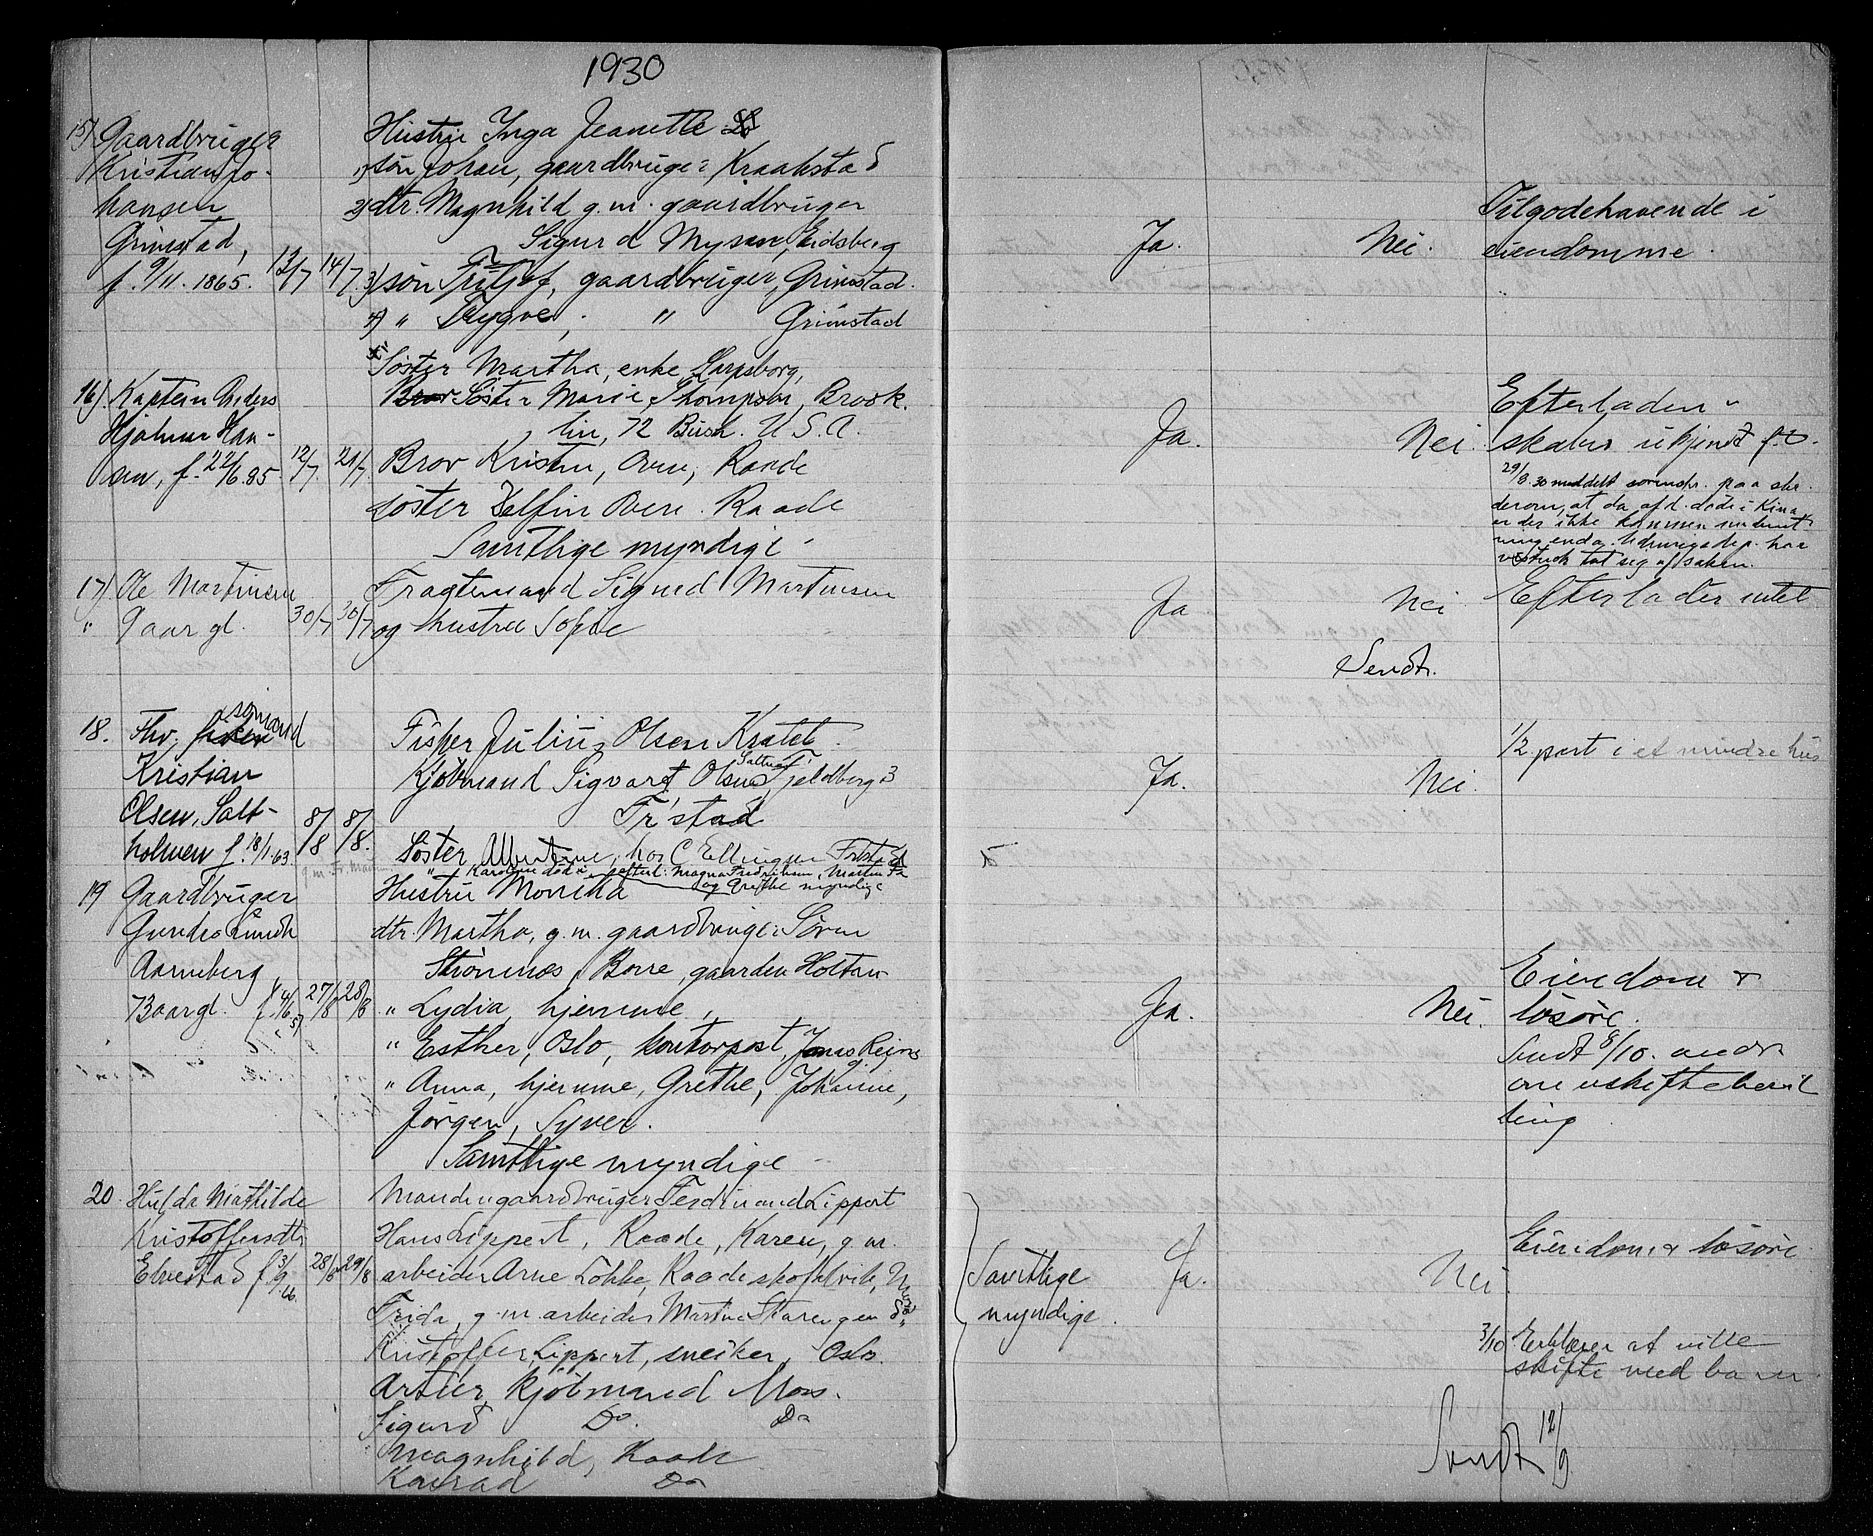 1930
15) Gaardbruger
Kristian Jo-
hansen
Grimstad,
f. 9/11. 1865. 13/7 14/7
Hustru Inga Jeanette
1) søn Johan, gaardbruger Kraakstad
2) dtr. Magnhild g.m. gaardbruger
Sigurd Mysen, Eidsberg
3) søn Fritjof, gaardbruger, Grimstad.
4) " Trygve, " Grimstad
Ja. Nei.
Tilgodehavende i
eiendomme.
16). Kaptein Anders
Hjalmar Han-
sen, f. 22/6.85. 12/7. 21/7.
Søster Martha, enke Sarpsborg,
Bror Søster Marie Thompson, Brook.
lin, 72 Bush. U.S.A.
Bror Kristen, Oven, Raade
Søster Delfin Oven. Raade
Samtlige myndige
Ja. Nei.
Efterladen-
skaber ukjendt f.t.
29/8.30 meddelt sorenskr. paa
derom, at da afd. døde i Kina
er der ikke kommen underret-
ning enda. Utenrigsdep. har
tat seg af saken.
17) Ole Martinsen
" 9 aar gl. 30/7 30/7
Fragtemand Sigurd Martinsen
og hustru Sofie
Ja Nei
Efterlader intet
Sendt.
18. Fhv. fisker sømand
Kristian
Olsen, Salt-
holmen f. 18/1.63. 8/8 8/8.
Fisker Julius Olsen
Kjøbmand Sigvart Olsen, Fjeldberg 3
Fr'stad
Søster Albertine, hos C Ellingsen Fr.stad
" Karoline død, efterl: Magna Fredriksen, Martin
og Grethe myndige
Ja. Nei.
1/2 part i et mindre hus
19 Gaardbruger
Gunder Lundh
Aarneberg,
73 aar gl. f. 4/6 57 27/8 28/8
Hustru Monika
dtr. Martha, g.m. gaardbruger Søren
Strømnes, Borre, gaarden Holtan
" Lydia, hjemme,
" Esther, Oslo, kontorpost, Jonas Reinsg.
" Anna, hjemme, Grethe, Johanne,
Jørgen, Syver.
Samtlige myndige
Ja. Nei.
Eiendom &
løsøre.
Sendt 8/10. andr.
om uskiftebevil
ling
20. Hulda Mathilde
Kristoffersdtr.
Elvestad f. 3/9.66. 28/8 29/8
Manden gaardbruger Ferdinand Lippert
Hans Lippert, Raade, Karen, g.m.
arbeider Arne Løkke, Raade skofabrik,
Frida, g.m. arbeider Martin Starengen
Kristoffer Lippert, snekker, Oslo.
Artur Kjøbmand Moss.
Sigurd Do. Do
Magnhild, Raade
Konrad Do
Samtlige
myndige.
Ja. Nei.
Eiendom & løsøre
3/10 Erklærer at ville
skifte med barn
Sendt 12/9